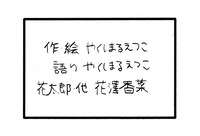 作 絵 やくしまるえつこ
語り やくしまるえつこ
花太郎 他 花澤香菜